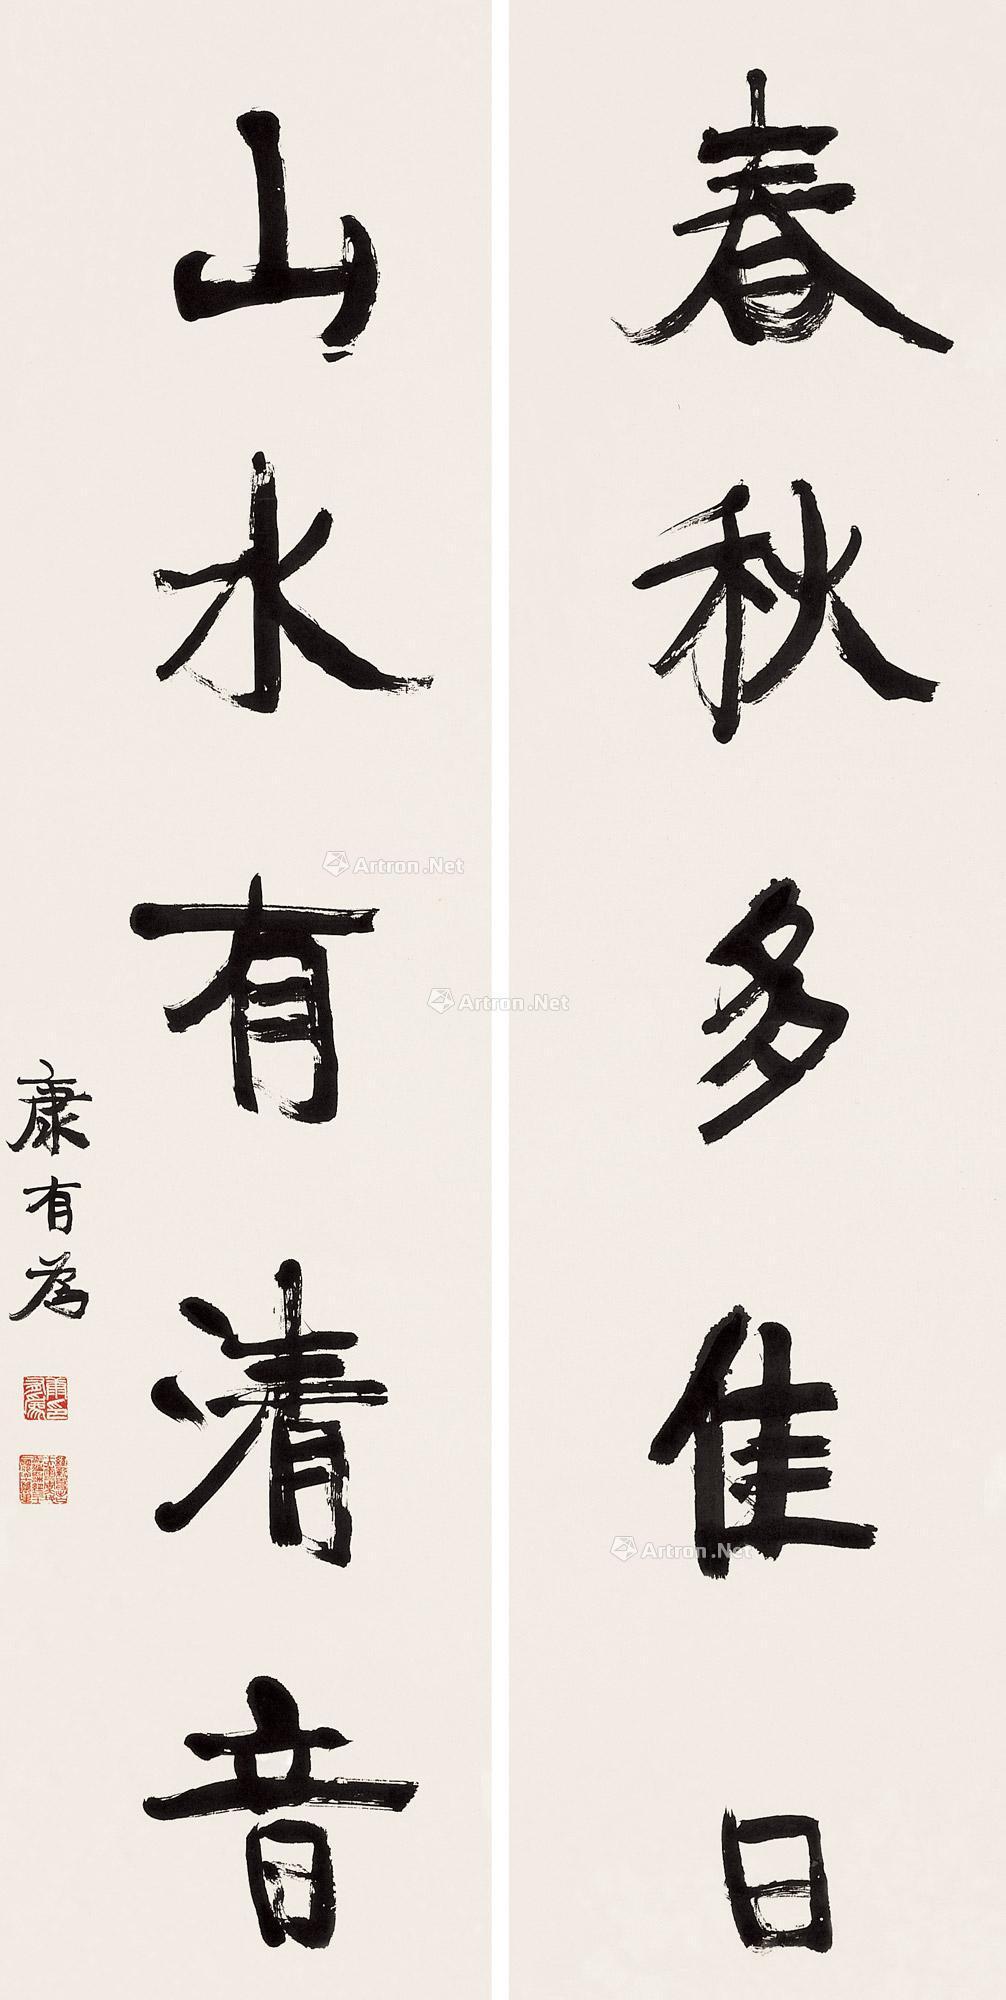 春秋多佳日
山水有清音
康有為
Artron.Net
Artron.Net
Artron.Net